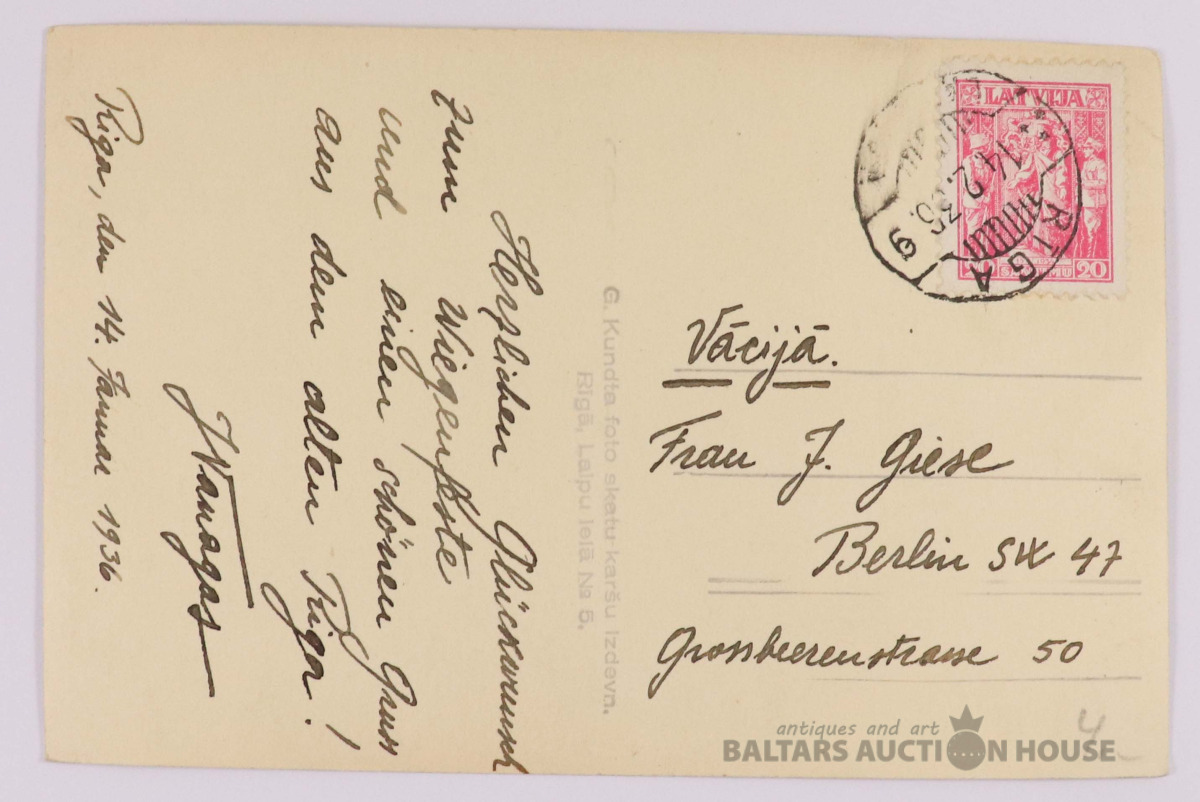 Herzlichen Glückwunsch
zum Wiegenfeste
und einen schönen Gruss
aus dem alten Riga!
JWanagas
Riga, den 14. Januar 1936.
G. Kundta foto skatu karšu izdevn.
Rīgā, Laipu ielā № 5.
LATVIJA
20 20
RĪGA 9
14.2.36.
Vācijā.
Frau J. Giese
Berlin SW 47
Grossbeerenstrasse 50
4
antiques and art
BALTARS AUCTION HOUSE